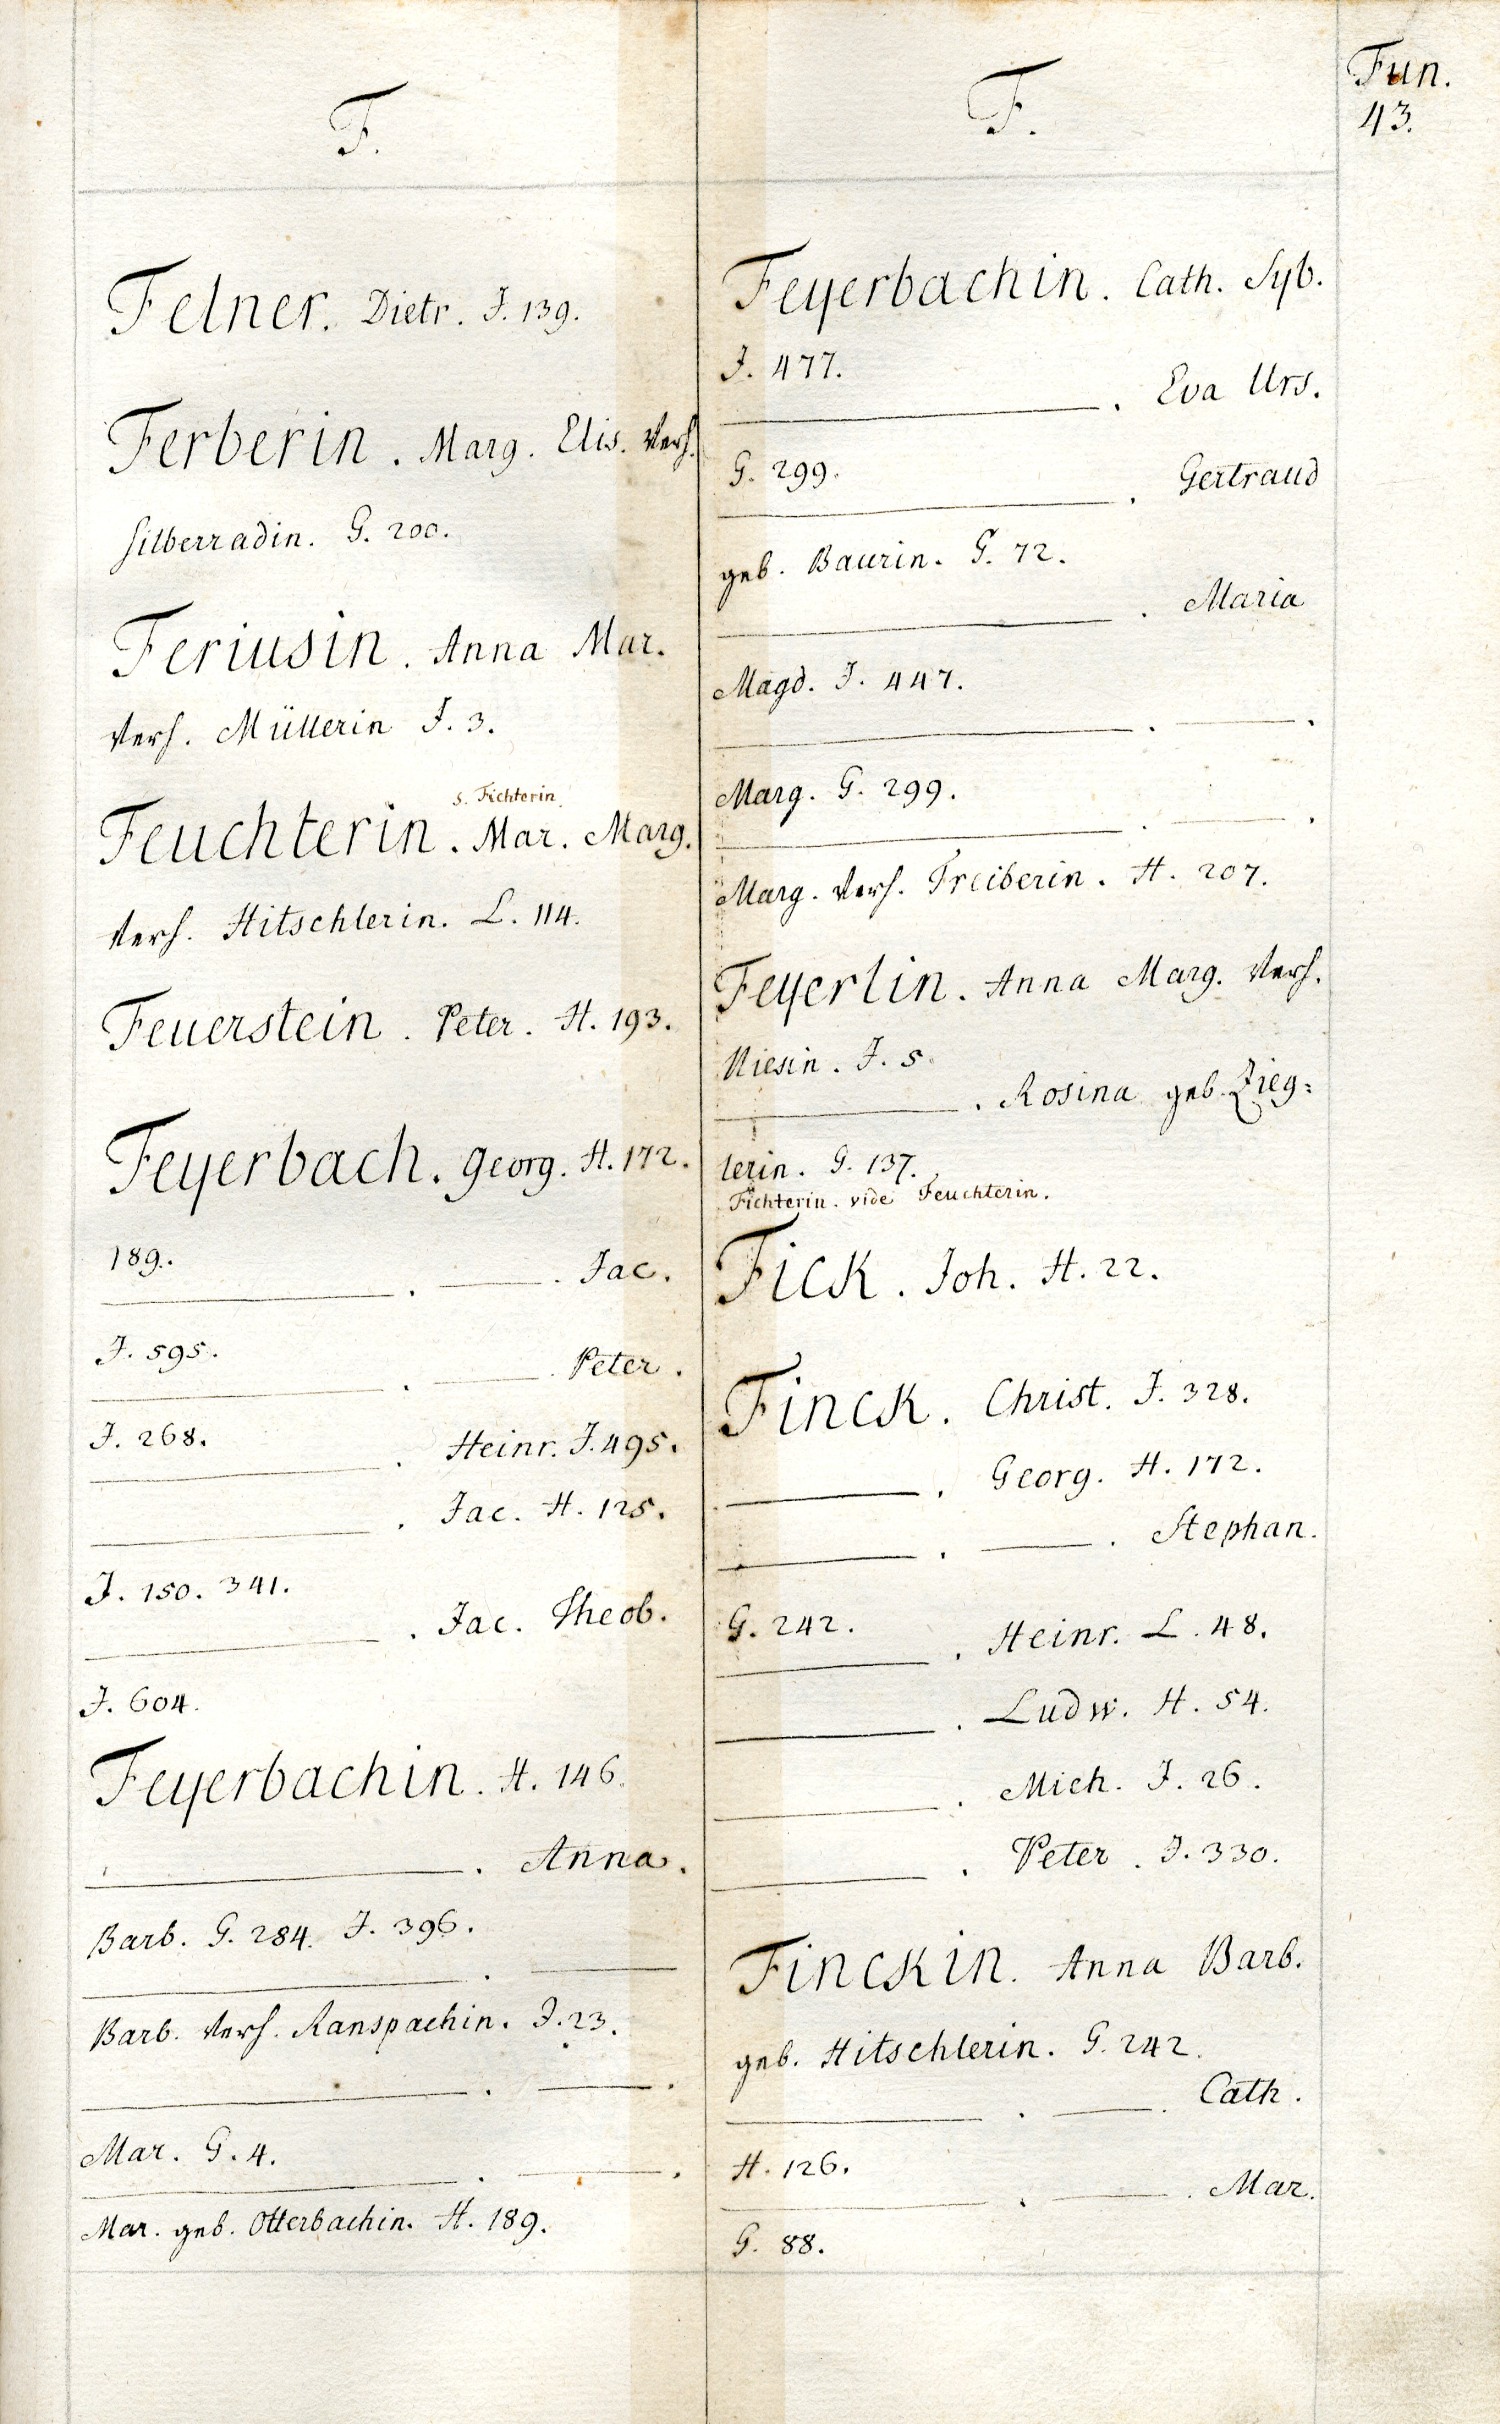 Fun.
43.
F.
Felner. Dietr. J. 139.
Ferberin. Marg. Elis. verh.
Silberradin. G. 200.
Feriusin. Anna Mar.
verh. Müllerin J. 3.
s. Fichterin
Feuchterin. Mar. Marg.
verh. Hitschlerin. L. 114.
Feuerstein. Peter. H. 193.
Feyerbach. Georg. H. 172.
189.
——— . ——— . Jac.
J. 595.
——— . ——— . Peter.
J. 268.
——— . Heinr. J. 495.
——— . Jac. H. 125.
J. 150. 341.
——— . Jac. Theob.
J. 604.
Feyerbachin. H. 146.
——— . Anna.
Barb. G. 284. J. 396.
——— . ———
Barb. verh. Ranspachin. J. 23.
——— . ——— .
Mar. G. 4.
——— . ——— .
Mar. geb. Otterbachin. H. 189.
F.
Feyerbachin. Cath. Syb.
J. 477.
——— . Eva Urs.
G. 299.
——— . Gertraud
geb. Baurin. G. 72.
——— . Maria
Magd. J. 447.
——— . ——— .
Marg. G. 299.
——— . ——— .
Marg. verh. Treiberin. H. 207.
Feyerlin. Anna Marg. verh.
Niesin. J. 5.
——— . Rosina geb. Zieg=
lerin. G. 137.
Fichterin. vide Feuchterin.
Fick. Joh. H. 22.
Finck. Christ. J. 328.
——— . Georg. H. 172.
——— . ——— . Stephan.
G. 242.
——— . Heinr. L. 48.
——— . Ludw. H. 54.
——— . Mich. J. 26.
——— . Peter. J. 330.
Finckin. Anna Barb.
geb. Hitschlerin. G. 242.
——— . ——— . Cath.
H. 126.
——— . ——— . Mar.
G. 88.